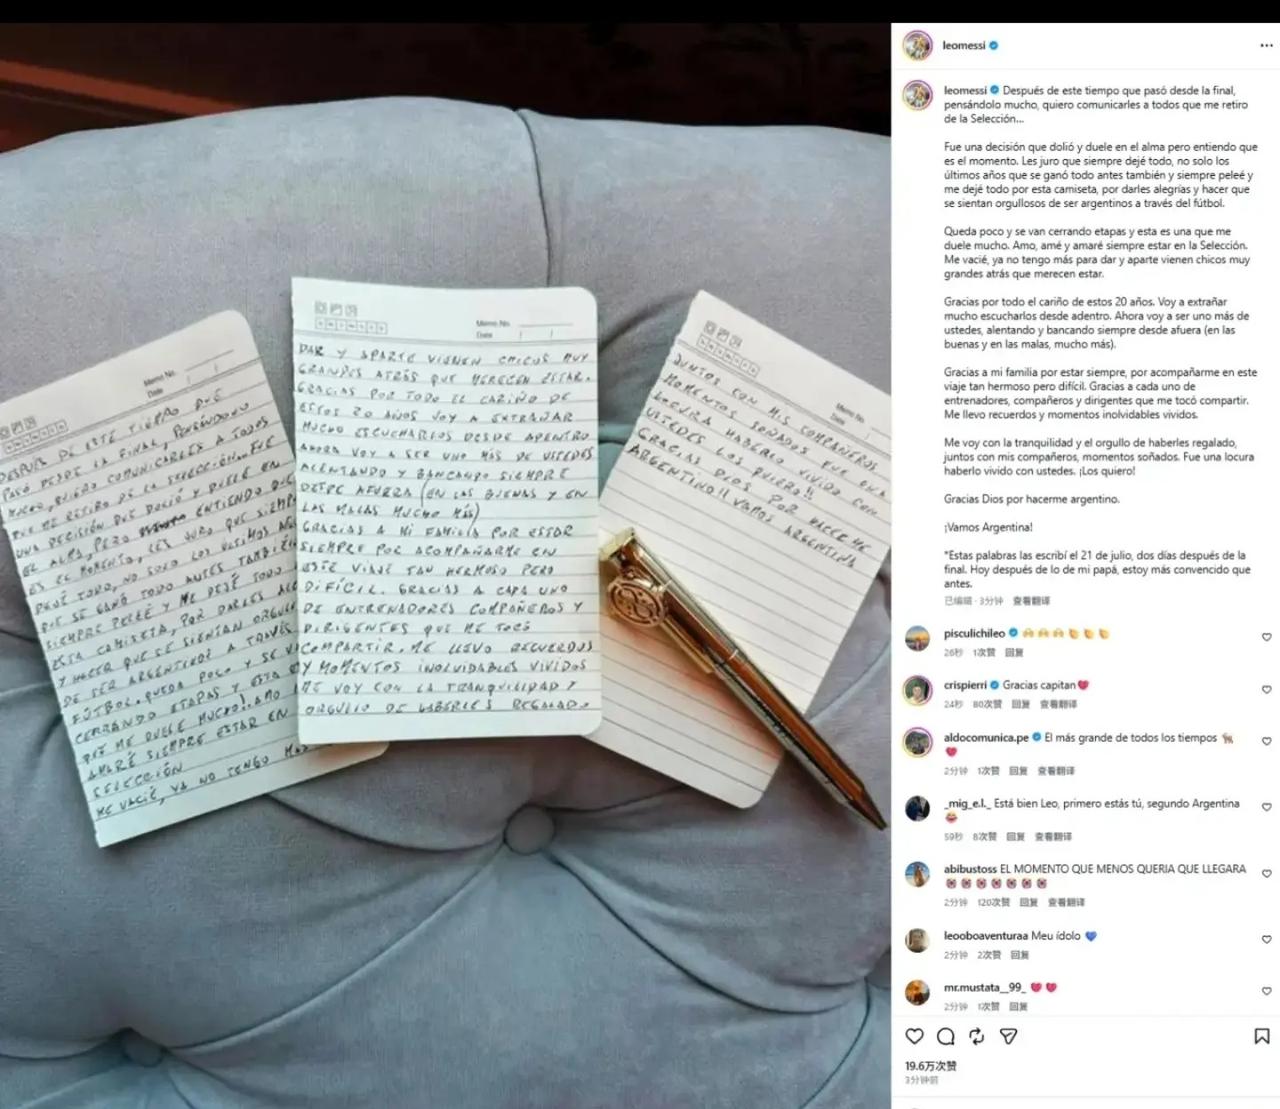 DESPUÉS DE ESTE TIEMPO QUE
PASÓ DESDE LA FINAL, PENSÁNDOLO
MUCHO, QUIERO COMUNICARLES A TODOS
QUE ME RETIRO DE LA SELECCIÓN... FUE
UNA DECISIÓN QUE DOLIÓ Y DUELE EN
EL ALMA, PERO ENTIENDO QUE
ES EL MOMENTO, LES JURO QUE SIEMPRE
DEJÉ TODO, NO SOLO LOS ÚLTIMOS AÑOS
QUE SE GANÓ TODO ANTES TAMBIÉN
SIEMPRE PELEÉ Y ME DEJÉ TODO
ESTA CAMISETA, POR DARLES
Y HACER QUE SE SIENTAN
DE SER ARGENTINOS A TRAVÉS
FÚTBOL. QUEDA POCO Y SE V
CERRANDO ETAPAS Y ESTA
QUE ME DUELE MUCHO!. AMO
AMARÉ SIEMPRE ESTAR EN
SELECCIÓN
ME VACIÉ, YA NO TENGO MÁS
Memo No.
Date / /
Memo No.
Date / /
DAR Y APARTE VIENEN CHICOS MUY
GRANDES ATRÁS QUE MERECEN ESTAR.
GRACIAS POR TODO EL CARIÑO DE
ESTOS 20 AÑOS VOY A EXTRAÑAR
MUCHO ESCUCHARLOS DESDE ADENTRO
AHORA VOY A SER UNO MÁS DE USTEDES
ALENTANDO Y BANCANDO SIEMPRE
DESDE AFUERA (EN LAS BUENAS Y EN
LAS MALAS MUCHO MÁS)
GRACIAS A MI FAMILIA POR ESTAR
SIEMPRE POR ACOMPAÑARME EN
ESTE VIAJE TAN HERMOSO PERO
DIFÍCIL. GRACIAS A CADA UNO
DE ENTRENADORES COMPAÑEROS Y
DIRIGENTES QUE ME TOCÓ
COMPARTIR. ME LLEVO RECUERDOS
Y MOMENTOS INOLVIDABLES VIVIDOS
ME VOY CON LA TRANQUILIDAD Y
ORGULLO DE HABERLES REGALADO
Memo No.
Date
JUNTOS CON MIS COMPAÑEROS
MOMENTOS SOÑADOS FUE UNA
LOCURA HABERLO VIVIDO CON
USTEDES LOS QUIERO!!
GRACIAS DIOS POR HACERME
ARGENTINO!! VAMOS ARGENTINA
leomessi
leomessi Después de este tiempo que pasó desde la final,
pensándolo mucho, quiero comunicarles a todos que me retiro
de la Selección...
Fue una decisión que dolió y duele en el alma pero entiendo que
es el momento. Les juro que siempre dejé todo, no solo los
últimos años que se ganó todo antes también y siempre peleé y
me dejé todo por esta camiseta, por darles alegrías y hacer que
se sientan orgullosos de ser argentinos a través del fútbol.
Queda poco y se van cerrando etapas y esta es una que me
duele mucho. Amo, amé y amaré siempre estar en la Selección.
Me vacié, ya no tengo más para dar y aparte vienen chicos muy
grandes atrás que merecen estar.
Gracias por todo el cariño de estos 20 años. Voy a extrañar
mucho escucharlos desde adentro. Ahora voy a ser uno más de
ustedes, alentando y bancando siempre desde afuera (en las
buenas y en las malas, mucho más).
Gracias a mi familia por estar siempre, por acompañarme en este
viaje tan hermoso pero difícil. Gracias a cada uno de
entrenadores, compañeros y dirigentes que me tocó compartir.
Me llevo recuerdos y momentos inolvidables vividos.
Me voy con la tranquilidad y el orgullo de haberles regalado,
juntos con mis compañeros, momentos soñados. Fue una locura
haberlo vivido con ustedes. ¡Los quiero!
Gracias Dios por hacerme argentino.
¡Vamos Argentina!
*Estas palabras las escribí el 21 de julio, dos días después de la
final. Hoy después de lo de mi papá, estoy más convencido que
antes.
已编辑 · 3分钟 查看翻译
pisculichileo 🙌🙌🙌👏👏👏
26秒 1次赞 回复
crispierri Gracias capitan❤️
24秒 80次赞 回复 查看翻译
aldocomunica.pe El más grande de todos los tiempos 🐐
❤️
2分钟 1次赞 回复 查看翻译
_mig_e.l._ Está bien Leo, primero estás tú, segundo Argentina
😂
59秒 8次赞 回复 查看翻译
abibustoss EL MOMENTO QUE MENOS QUERIA QUE LLEGARA
😭😭😭😭😭😭😭
2分钟 120次赞 回复 查看翻译
leooboaventuraa Meu ídolo 💙
2分钟 2次赞 回复
mr.mustata__99_ ❤️ ❤️
2分钟 1次赞 回复
19.6万次赞
3分钟前